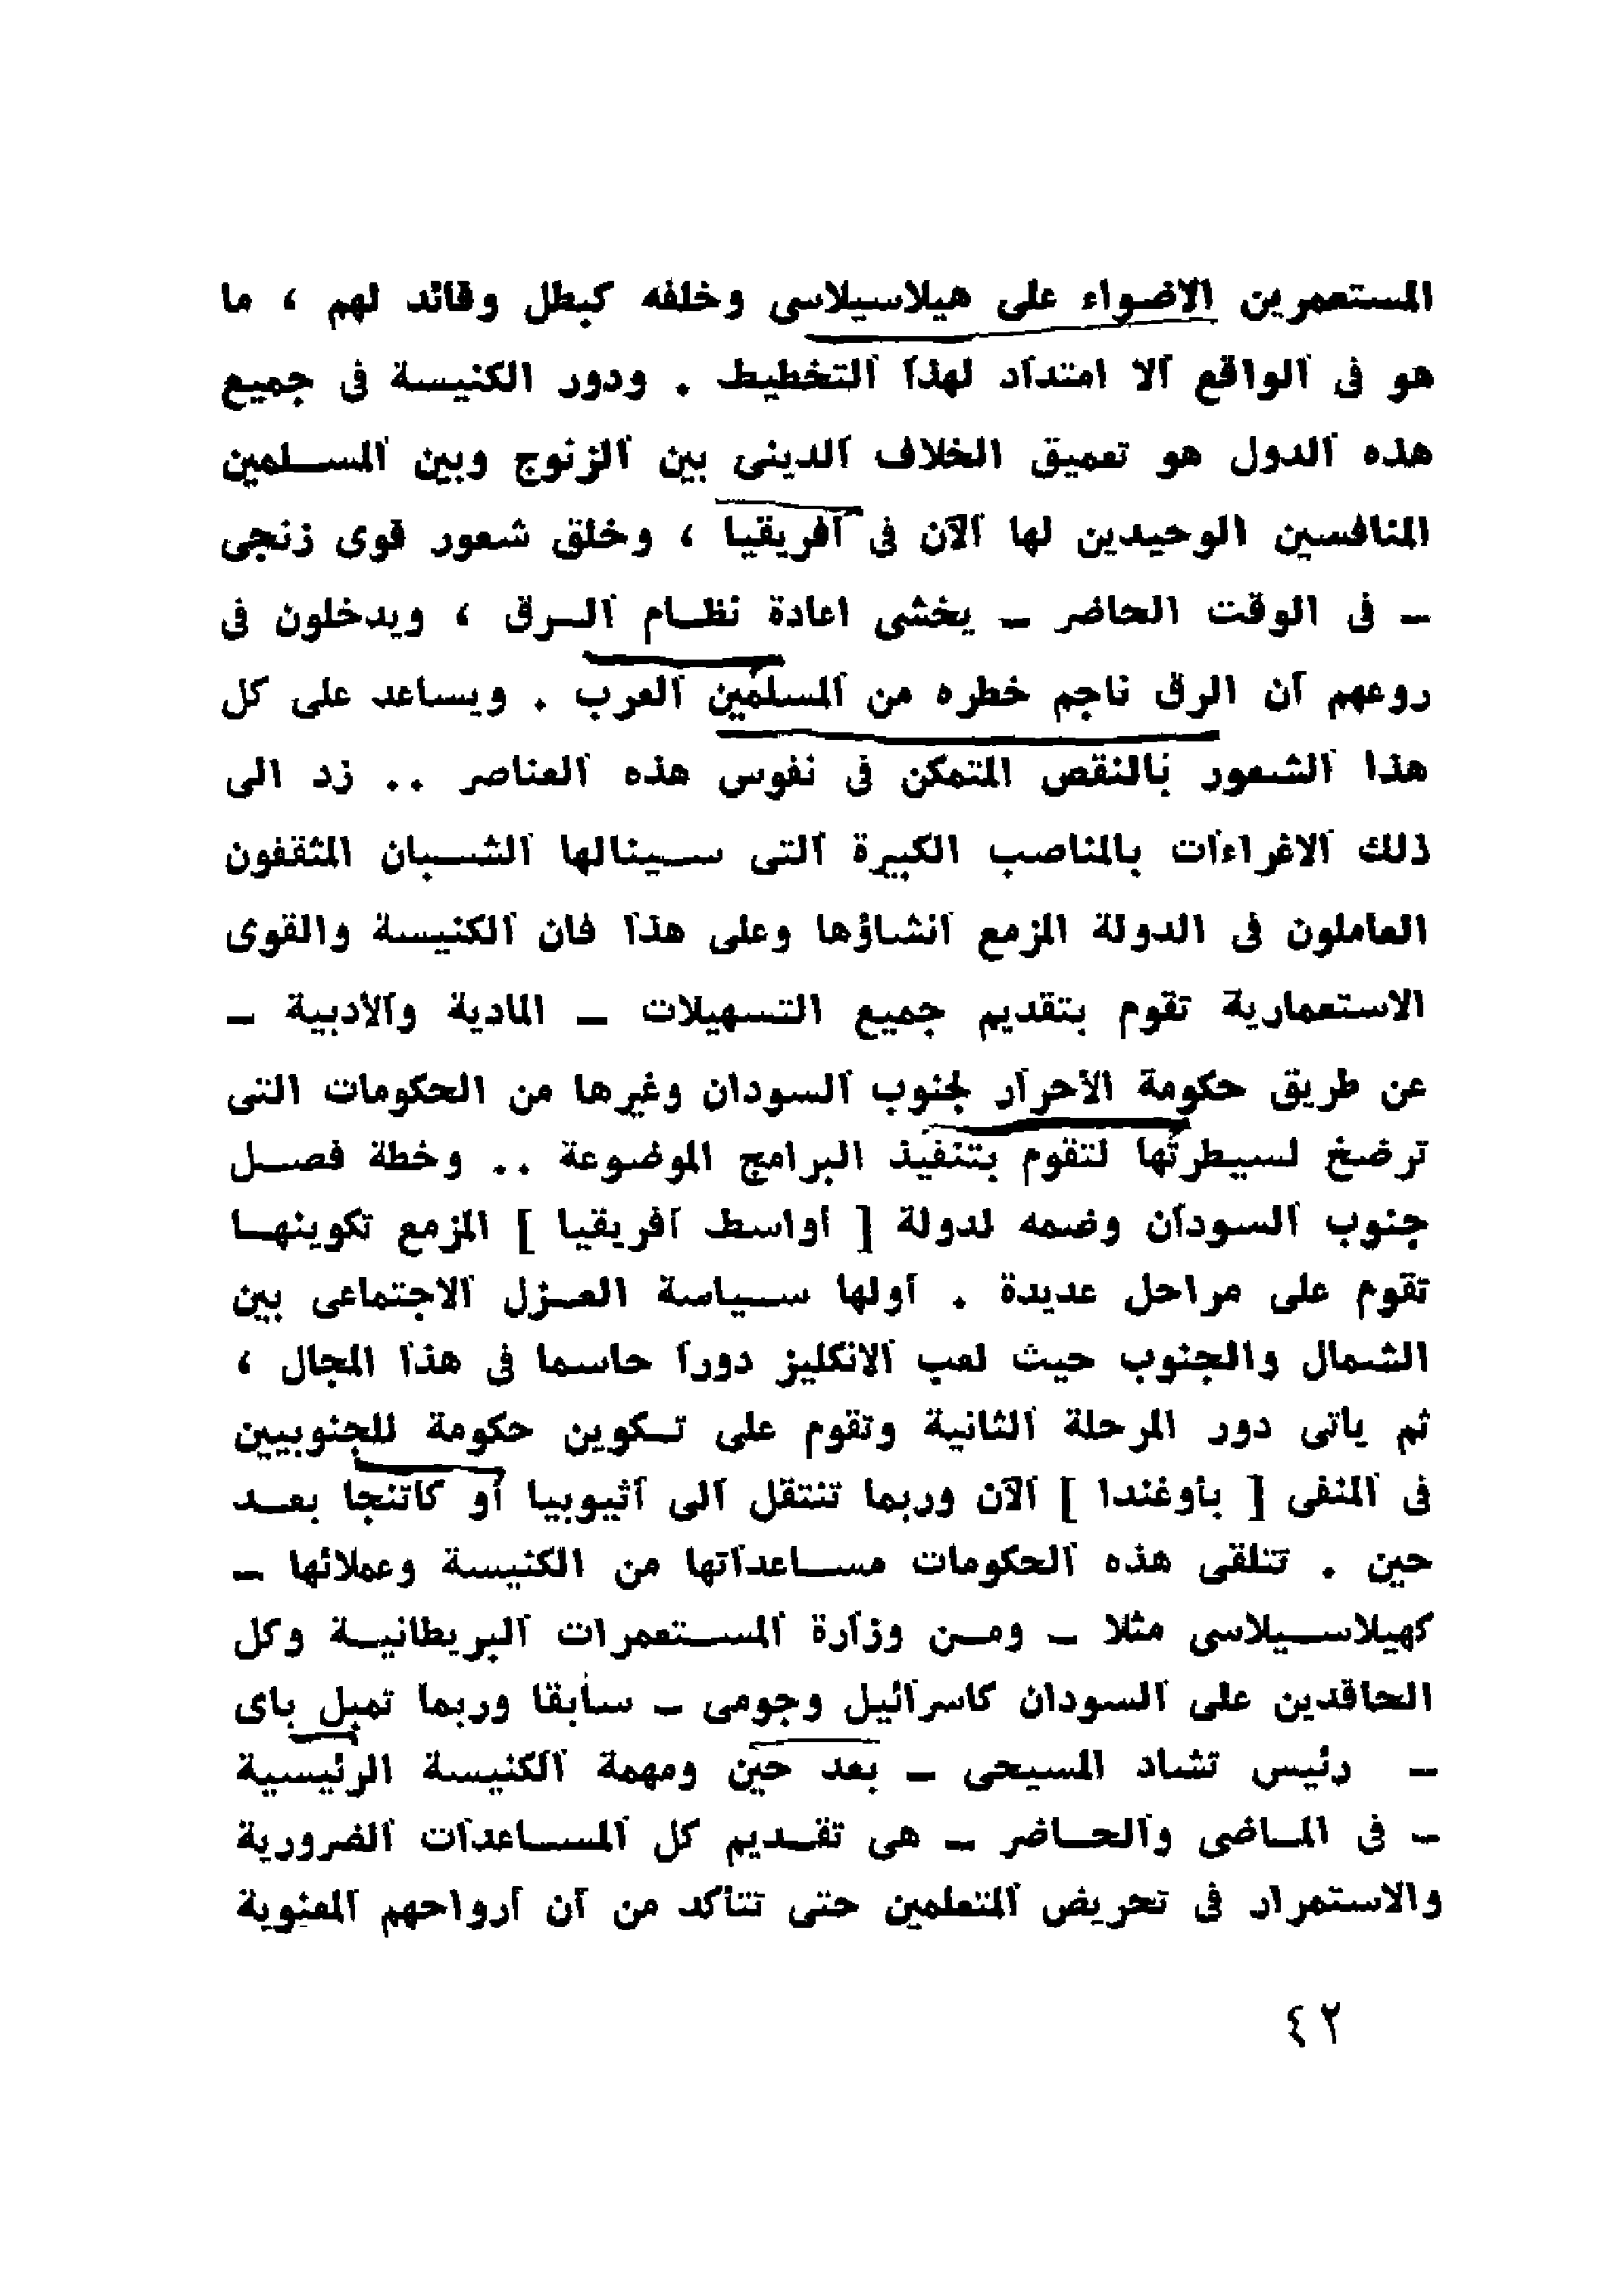 المستعمرين الاضواء على هيلاسيلاسى وخلفه كبطل وقائد لهم ، ما
هو فى الواقع الا امتداد لهذا التخطيط . ودور الكنيسة فى جميع
هذه الدول هو تعميق الخلاف الدينى بين الزنوج وبين المسلمين
المنافسين الوحيدين لها الآن فى افريقيا ، وخلق شعور قوى زنجى
– فى الوقت الحاضر – يخشى اعادة نظام الرق ، ويدخلون فى
روعهم ان الرق ناجم خطره من المسلمين العرب . ويساعد على كل
هذا الشعور بالنقص المتمكن فى نفوس هذه العناصر .. زد الى
ذلك الاغراءات بالمناصب الكبيرة التى سينالها الشبان المثقفون
العاملون فى الدولة المزمع انشاؤها وعلى هذا فان الكنيسة والقوى
الاستعمارية تقوم بتقديم جميع التسهيلات – المادية والأدبية –
عن طريق حكومة الاحرار لجنوب السودان وغيرها من الحكومات التى
ترضخ لسيطرتها لتقوم بتنفيذ البرامج الموضوعة .. وخطة فصل
جنوب السودان وضمه لدولة [ أواسط افريقيا ] المزمع تكوينها
تقوم على مراحل عديدة . أولها سياسة العزل الاجتماعى بين
الشمال والجنوب حيث لعب الانكليز دورا حاسما فى هذا المجال ،
ثم ياتى دور المرحلة الثانية وتقوم على تكوين حكومة للجنوبيين
فى المنفى [ بأوغندا ] الآن وربما تنتقل الى اثيوبيا أو كاتنجا بعد
حين . تتلقى هذه الحكومات مساعداتها من الكنيسة وعملائها –
كهيلاسيلاسى مثلا – ومن وزارة المستعمرات البريطانية وكل
الحاقدين على السودان كاسرائيل وجومى – سابقا وربما تمبل باى
– رئيس تشاد المسيحى – بعد حين ومهمة الكنيسة الرئيسية
– فى الماضى والحاضر – هى تقديم كل المساعدات الضرورية
والاستمرار فى تحريض المتعلمين حتى تتأكد من ان أرواحهم المعنوية
٤٢